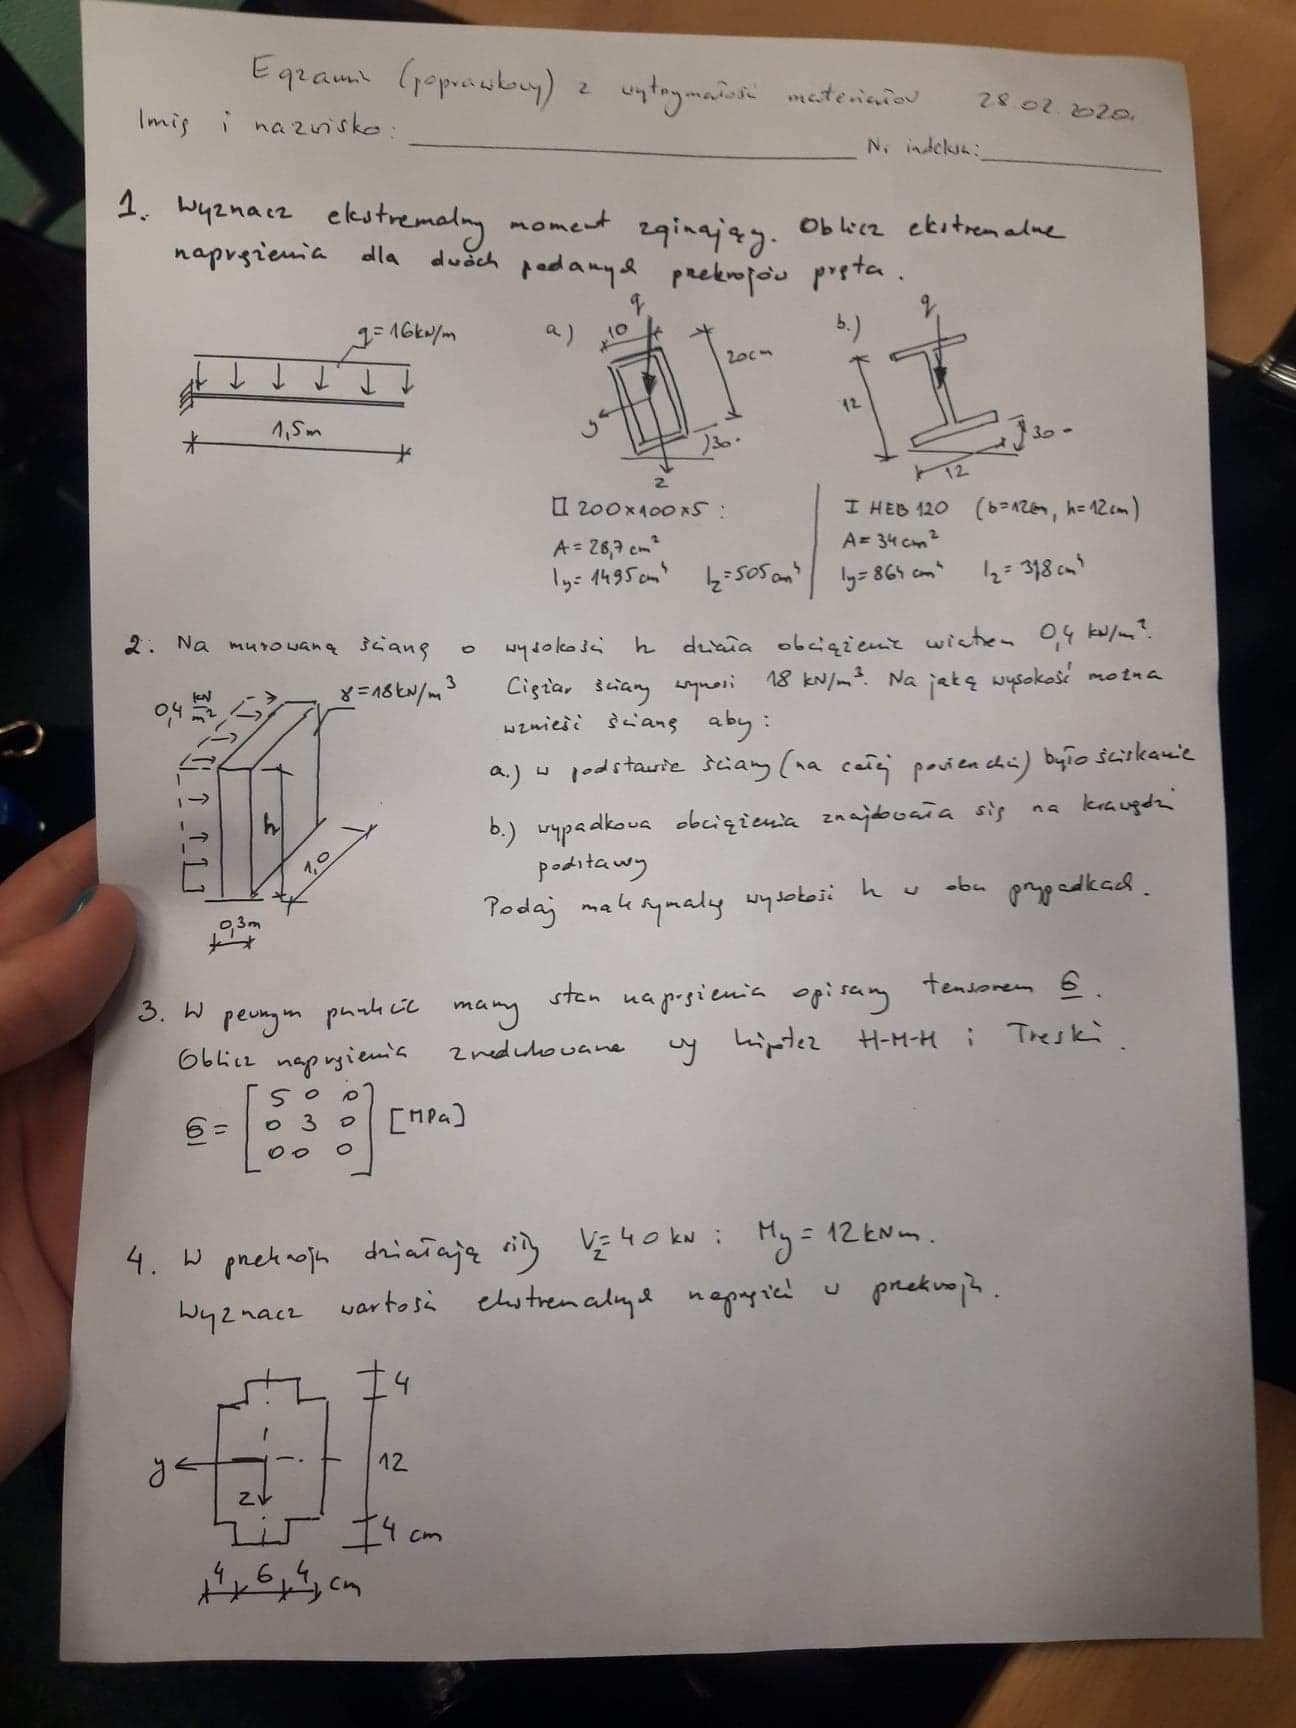 Egzamin (poprawkowy) z wytrzymałości materiałów 28.02.2020.
Imię i nazwisko:
Nr indeksu:
1. Wyznacz ekstremalny moment zginający. Oblicz ekstremalne
naprężenia dla dwóch podanych przekrojów pręta.
q=16kN/m
1,5m
a)
10
q
20cm
y
z
30°
b.)
q
12
12
30°
▯ 200x100x5 :
A = 28,7 cm²
Iy = 1495 cm⁴ Iz = 505 cm⁴
I HEB 120 (b=12cm, h=12cm)
A = 34 cm²
Iy = 864 cm⁴ Iz = 318 cm⁴
2. Na murowaną ścianę o wysokości h działa obciążenie wiatrem 0,4 kN/m².
Ciężar ściany wynosi 18 kN/m³. Na jaką wysokość można
wznieść ścianę aby:
a.) w podstawie ściany (na całej powierzchni) było ściskanie
b.) wypadkowa obciążenia znajdowała się na krawędzi
podstawy
Podaj maksymalną wysokość h w obu przypadkach.
0,4 kN/m²
γ=18kN/m³
h
1,0
0,3m
3. W pewnym punkcie mamy stan naprężenia opisany tensorem σ.
Oblicz naprężenia zredukowane wg hipotez H-M-H i Treski.
σ = [MPa]
5 0 0
0 3 0
0 0 0
4. W przekroju działają siły Vz=40kN i My = 12kNm.
Wyznacz wartości ekstremalnych naprężeń w przekroju.
4
12
4 cm
y
z
4 6 4 cm